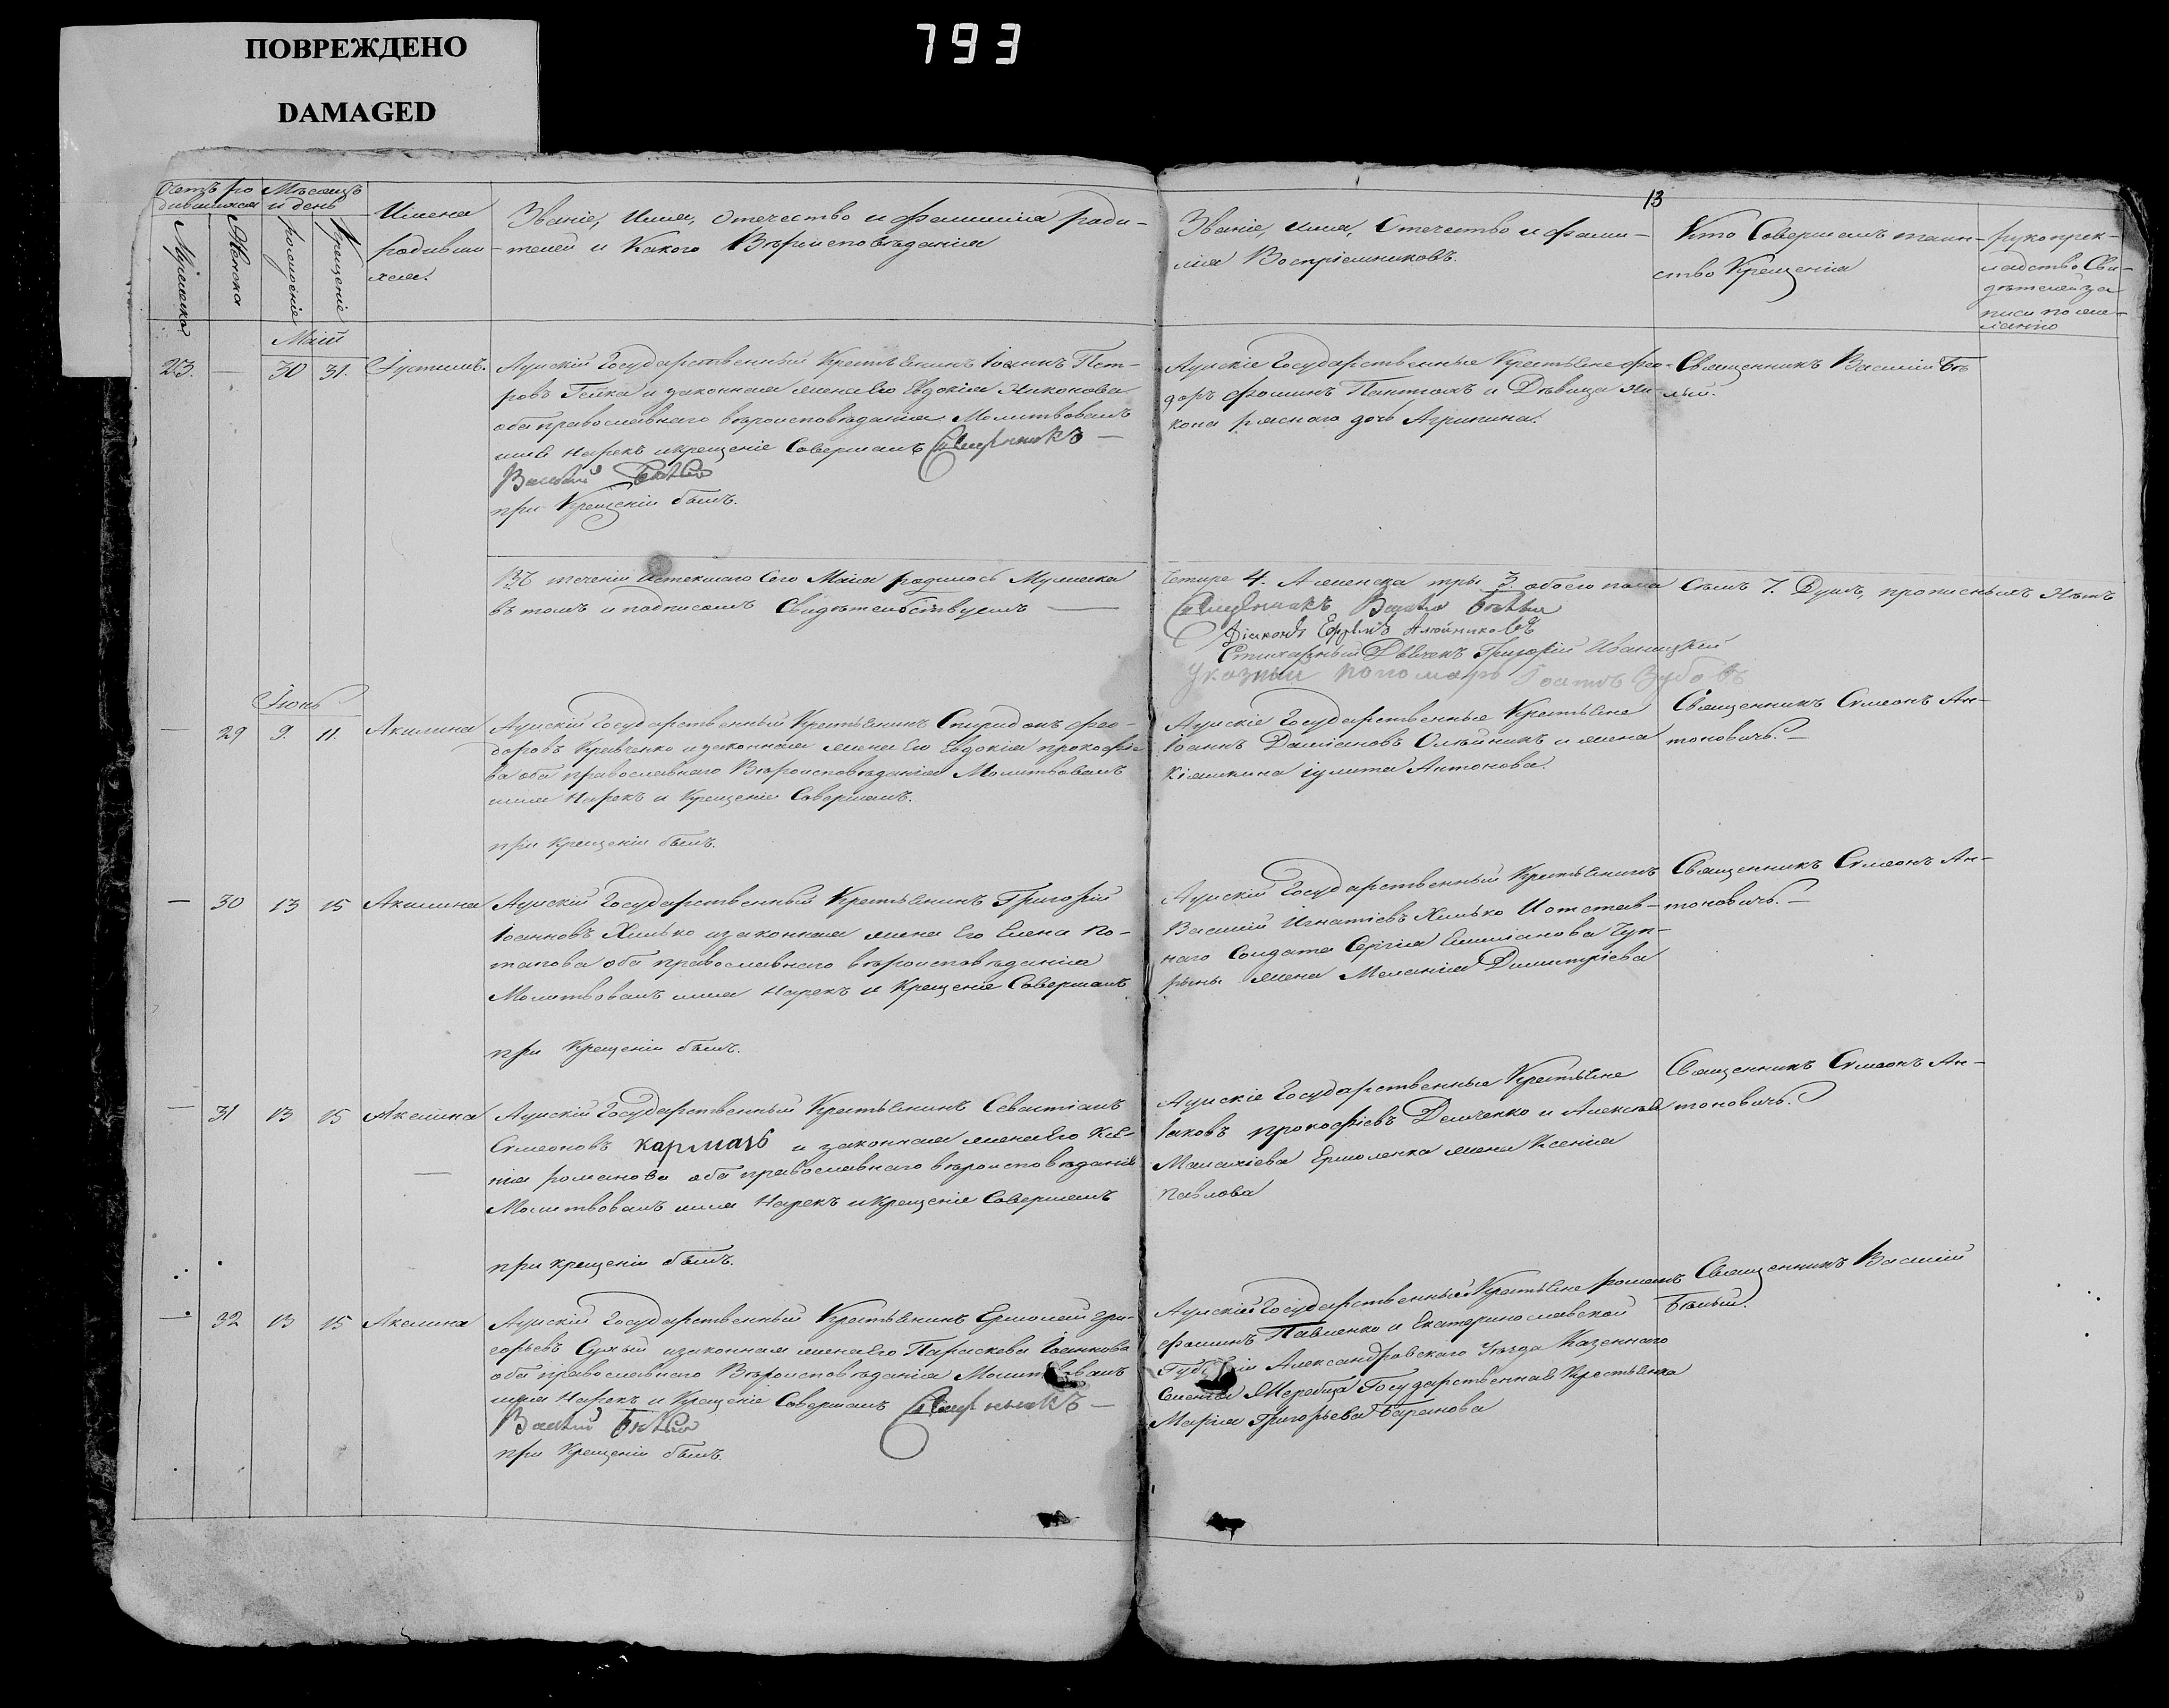 ПОВРЕЖДЕНО
DAMAGED
793
13
Счетъ ро
дившихся
Мѣсяцъ
и день
Женска
рожденіе
Крещеніе
Имена
родивши
хся.
Званіе, имя, отечество и фамилія роди-
телей и Какого Вѣроисповѣданія
Званіе, имя, Отечество и фами-
лія Воспріемниковъ.
Кто Совершалъ таин-
ство Крещенія
рукоприк-
ладство Сви-
дѣтелей за
писи по же-
ланію
Маій
23. — 30 31. Іустинъ.
Аулскій Государственный Крестьянинъ Іоаннъ Пет-
ровъ Гейка и законная жена Его Евдокія Никонова
оба православнаго вѣроисповѣданія Молитвовалъ
имя нарекъ и крещеніе Совершалъ Священникъ —
Василій Бѣлый
при Крещеніи былъ.
Аулскіе Государственные Крестьяне Фео-
доръ Фоминъ и Дѣвица Ни-
кона дочь Агрипина.
Священникъ Василій Бѣ
лый.
Въ теченіи истекшаго Сего Маія родилось Мужеска
въ томъ и подписомъ Свидѣтельствуемъ —
Четыре 4. А женска три 3 обоего пола Семъ 7. Душъ, прописныхъ Нѣтъ
Священникъ Василій Бѣлый
Діаконъ Ефремъ
Стихарный Дьячекъ Григорій Иваницкій
Указный пономарь Зубовъ
Іюнь
— 29 9. 11. Акилина
Аулскій Государственный Крестьянинъ Спиридонъ Фео-
доровъ Кравченко и законная жена Его Евдокія прокофіе
ва оба православнаго Вѣроисповѣданія Молитвовалъ
имя Нарекъ и Крещеніе Совершалъ.
при крещеніи былъ.
Аулскіе Государственные Крестьяне
Іоаннъ Даміановъ Олѣйникъ и жена
іулита Антонова.
Священникъ Симеонъ Ан-
тоновичъ. —
— 30 13 15 Акилина
Аулскій Государственный Крестьянинъ Григорій
Іоанновъ Хилько и законная жена Его Елена По-
тапова оба православнаго вѣроисповѣданія
Молитвовалъ имя Нарекъ и Крещеніе Совершалъ
при Крещеніи былъ.
Аулскій Государственный Крестьянинъ
Василій Игнатіевъ Хилько И отстав-
наго Солдата Сергія Емиліанова Чуп-
рыны жена Меланія Димитріева
Священникъ Симеонъ Ан-
тоновичъ. —
— 31 13 15 Акилина
Аулскій Государственный Крестьянинъ Севастіанъ
Симеоновъ Кармазь и законная жена Его Ксе-
нія романова оба православнаго вѣроисповѣданія
Молитвовалъ имя Нарекъ и Крещеніе Совершалъ
при крещеніи былъ.
Аулскіе Государственные Крестьяне
Іаковъ прокофіевъ Демченко и Алексѣя
Малахіева Ермоленка жена Ксенія
Павлова
Священникъ Симеонъ Ан-
тоновичъ.
— 32 13 15 Акилина
Аулскій Государственный Крестьянинъ Ермолай Гри-
горьевъ Сухый и законная жена Его Параскева Іоаннова
оба православнаго Вѣроисповѣданія Молитвовалъ
имя Нарекъ и Крещеніе Совершалъ Священникъ —
Василій Бѣлый
при Крещеніи былъ.
Аулскій Государственный Крестьяне романъ
Фоминъ Павленко и Екатеринославской
Губерніи Александровскаго Уѣзда Казеннаго
Селенія Жеребца Государственная Крестьянка
Марія Григорьева Баранова
Священникъ Василій
Бѣлый.